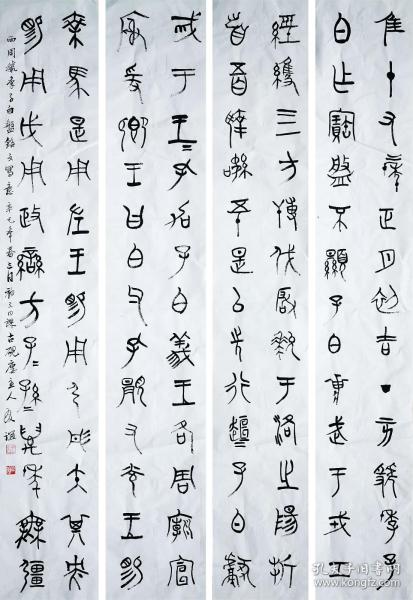 隹十又二年正月初吉丁亥虢季子
白乍寶盤不顯子白壯武于戎工
經維四方搏伐玁狁于洛之陽折
首五百執訊五十是以先行桓桓子白獻
馘于王王孔加子白義王各周廟宣
榭爰饗王曰白父孔顯又光王賜
乘馬是用左王賜用弓彤矢其央
賜用戉用政蠻方子子孫孫萬年無疆
西周虢季子白盤銘文寫意辛丑年暮春三月初三日課古硯廬主人
孔夫子旧书网
www.kongfz.com